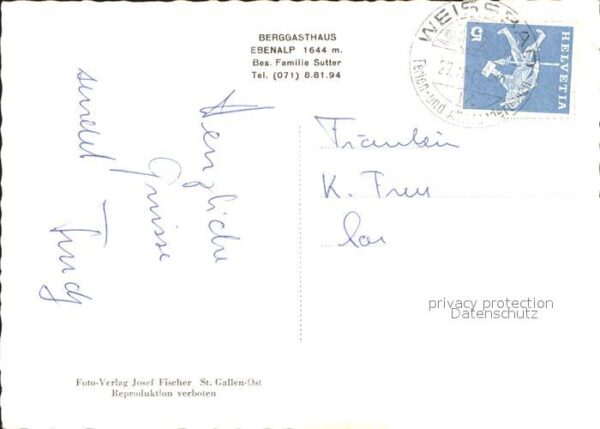 BERGGASTHAUS
EBENALP 1644 m.
Bes. Familie Sutter
Tel. (071) 8.81.94
Herzliche
Grüsse
sendet Trudy
Fräulein
K. Frey
WEISSBAD
Ferien- und
HELVETIA
5
privacy protection
Datenschutz
Foto-Verlag Josef Fischer St. Gallen-Ost
Reproduktion verboten